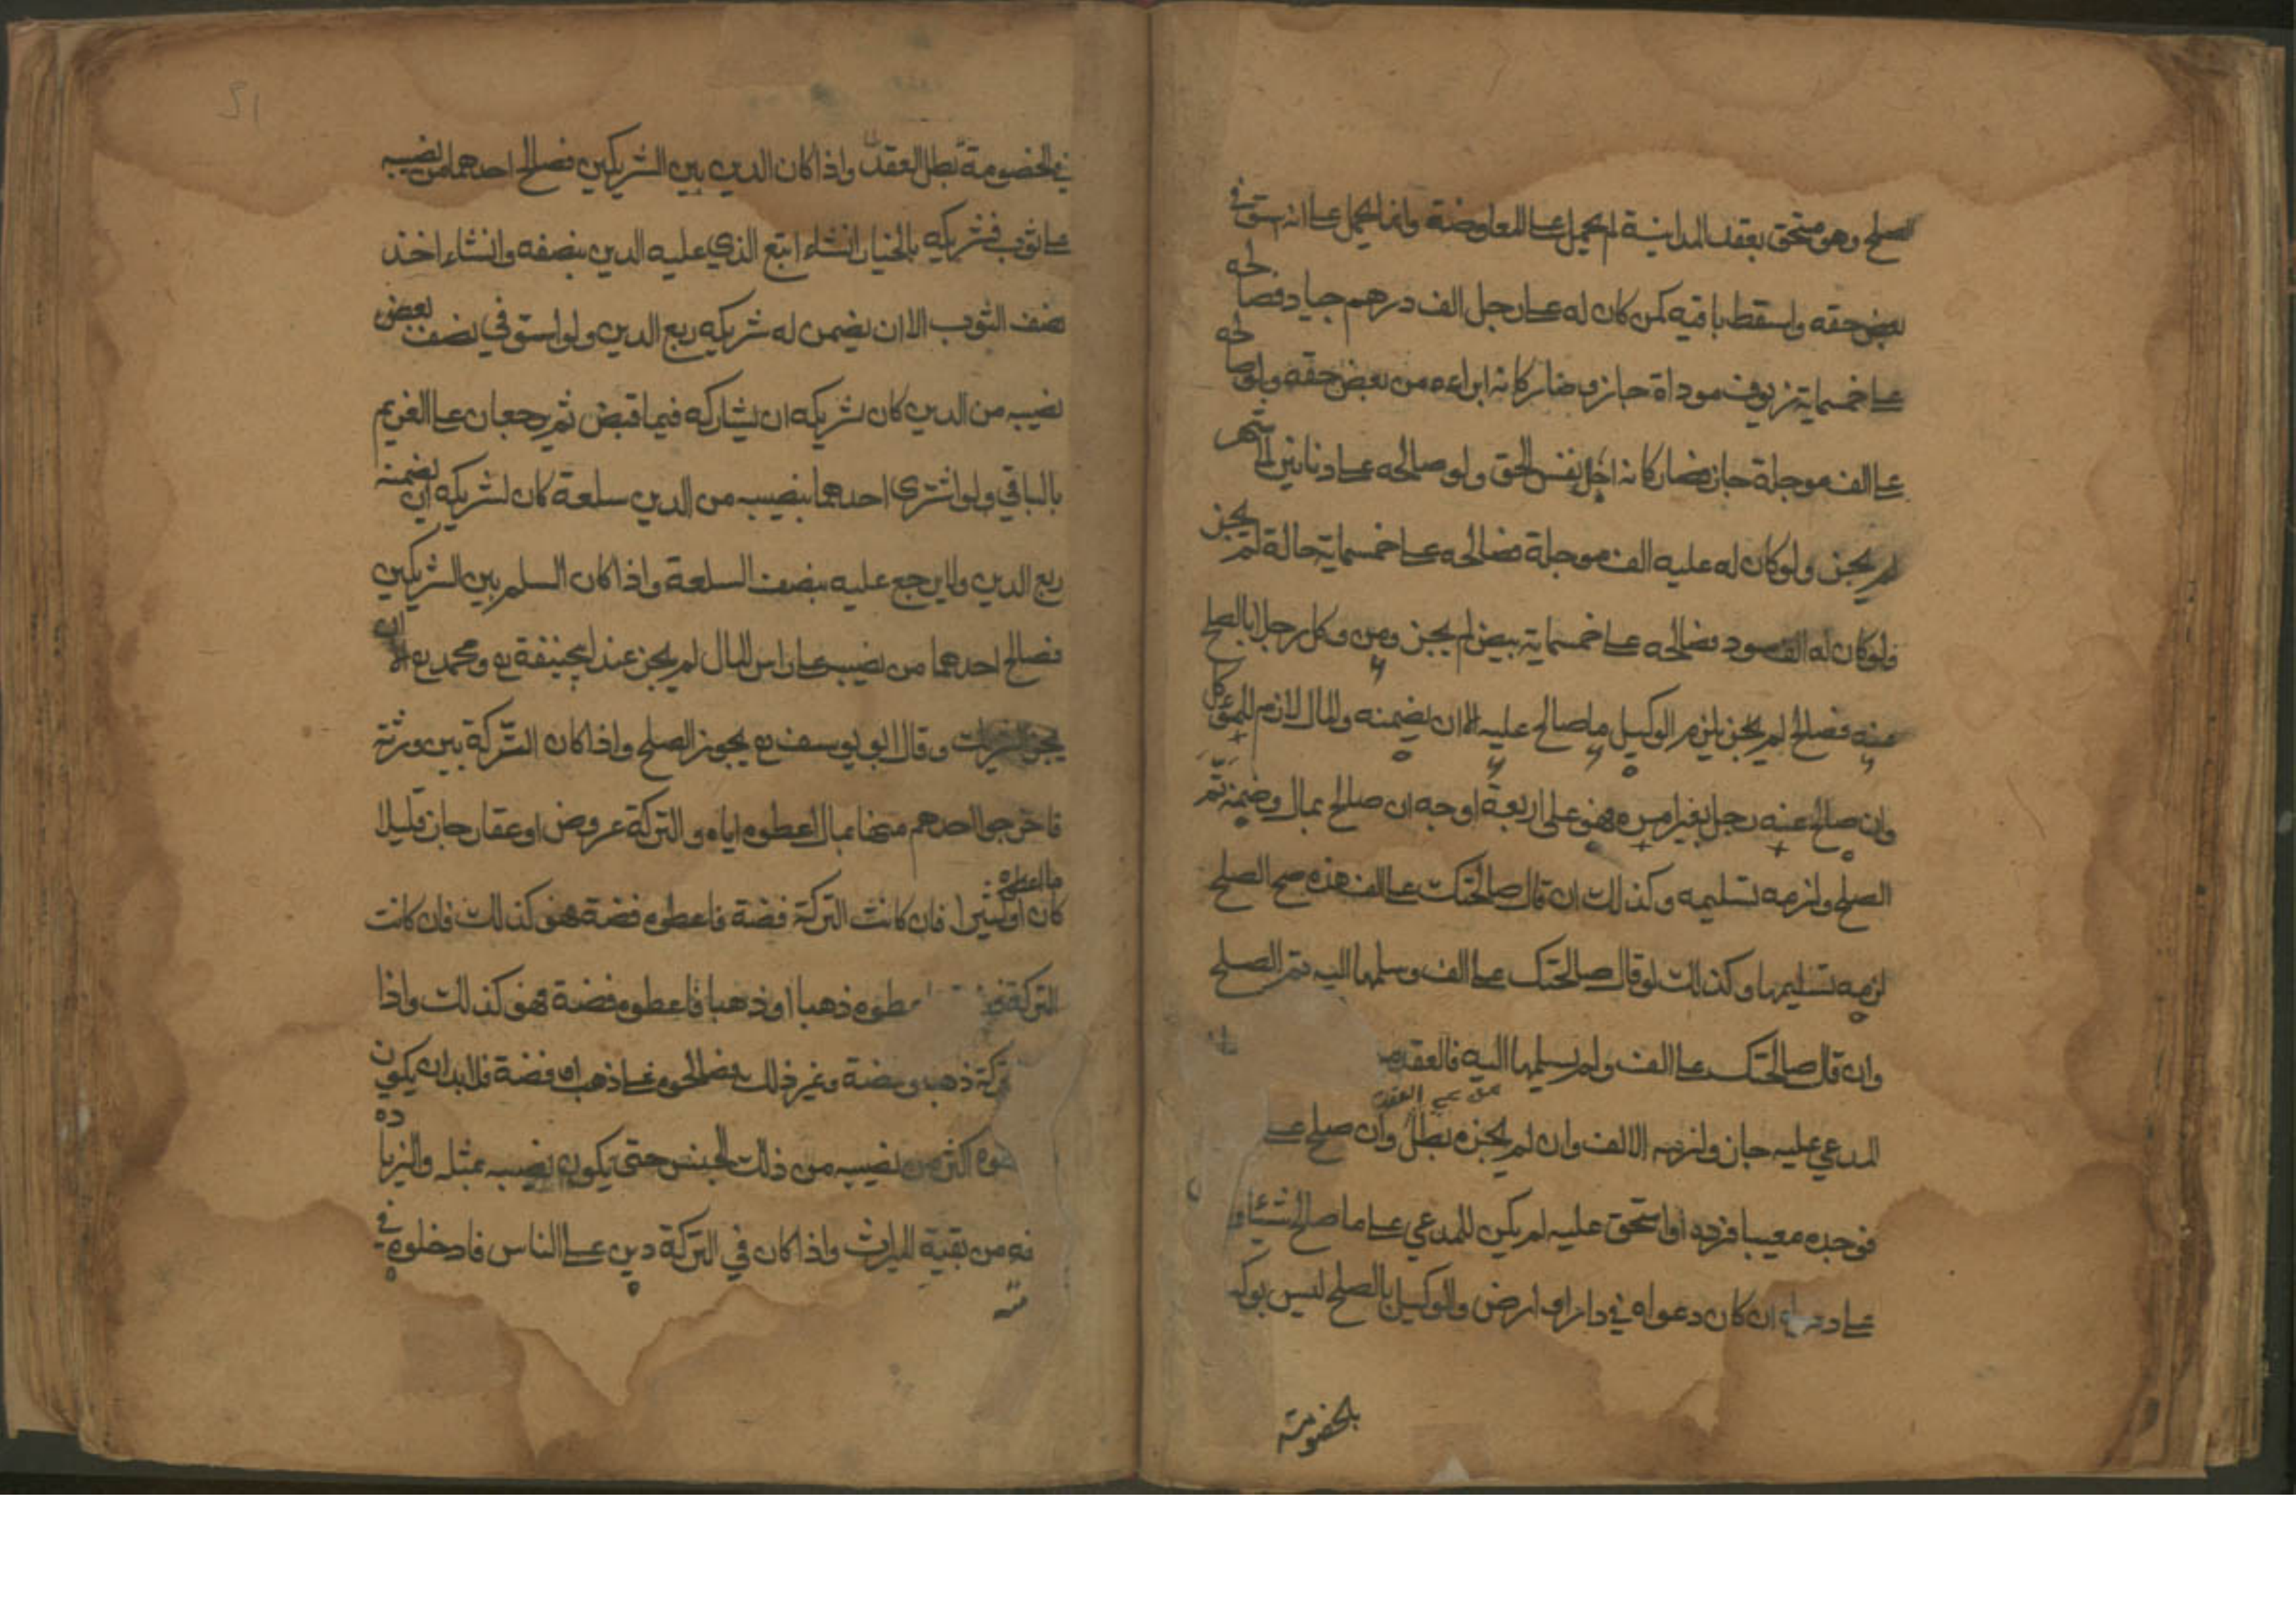 الصلح وهو مستحق بعقد المداينة لم يحمل على المعاوضة وانما يحمل على انه استوفى
بعض حقه واسقط باقيه كمن كان له على رجل الف درهم جياد فصالحه
على خمسماية زيوف موداة جاز وصار كانه ابراءه من بعض حقه ولو صالحه
على الف موجلة جاز فصار كانه اجل نفس الحق ولو صالحه على دنانير الى شهر
لم يجز ولو كان له عليه الف موجلة فصالحه على خمسماية حالة لم يجز
ولو كان له الف سود فصالحه على خمسماية بيض لم يجز ومن وكل رجلا بالصلح
عنه فصالح لم يجز يلزم الوكيل ما صالح عليه الا ان يضمنه والمال لازم للموكل
وان صالح عنه رجل بغير امره فهو على اربعة اوجه ان صالح بمال وضمنه تم
الصلح ولزمه تسليمه وكذلك ان قال صالحتك على الف هذه صح الصلح
لزمه تسليمها وكذلك لو قال صالحتك على الف وسلمها اليه فتم الصلح
وان قال صالحتك على الف ولم يسلمها اليه فالعقد
المدعي عليه جاز ولزمه الالف وان لم يجزه بطل وان صلح على
فوجده معيبا فرده او استحق عليه لم يكن للمدعي على ما صالح شيئا و
على ان كان دعواه في دار او ارض والوكيل بالصلح ليس بوكـ
بالخصومة
51
في الخصومة بطل العقد واذا كان الدين بين الشريكين فصالح احدهما من نصيبه
على ثوب فشريكه بالخيار انشاء اتبع الذي عليه الدين بنصفه وانشاء اخذ
نصف الثوب الا ان يضمن له شريكه ربع الدين ولو استوفي نصف بعض
نصيبه من الدين كان لشريكه ان يشاركه فيما قبض ثم يرجعان على الغريم
بالباقي ولو اشترى احدهما بنصيبه من الدين سلعة كان لشريكه ان يضمنه
ربع الدين ولا يرجع عليه بنصف السلعة واذا كان السلم بين الشريكين
فصالح احدهما من نصيبه على راس المال لم يجز عند ابيحنيفة رح ومحمد رح
وقال ابو يوسف رح يجوز الصلح واذا كان التركة بين ورثة
فاخرجوا احدهم منها بمال اعطوه اياه والتركة عروض او عقار جاز قليلا
ما اعطوه
كان او كثيرا فان كانت التركة فضة فاعطوه فضة فهو كذلك فان كانت
التركة اعطوه ذهبا او ذهبا فاعطوه فضة فهو كذلك واذا
تركة ذهب وفضة وغير ذلك فصالحوه على ذهب او فضة فلا بد ان يكون
اكثر من نصيبه من ذلك الجنس حتى يكون نصيبه بمثله والزيادة
من بقية الميراث واذا كان في التركة دين على الناس فادخلوه في